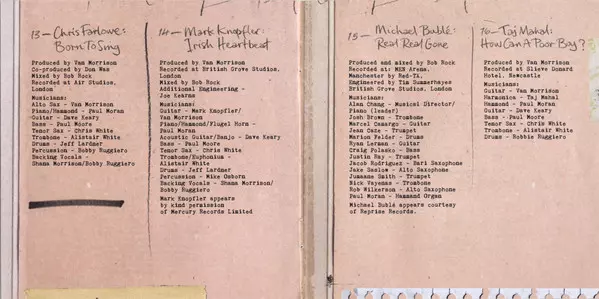 13 - Chris Farlowe:
Born To Sing
Produced by Van Morrison
Co-produced by Don Was
Mixed by Bob Rock
Recorded at Air Studios,
London
Musicians:
Alto Sax - Van Morrison
Piano/Hammond - Paul Moran
Guitar - Dave Keary
Bass - Paul Moore
Tenor Sax - Chris White
Trombone - Alistair White
Drums - Jeff Lardner
Percussion - Bobby Ruggiero
Backing Vocals -
Shana Morrison/Bobby Ruggiero
14 - Mark Knopfler:
Irish Heartbeat
Produced by Van Morrison
Recorded at British Grove Studios,
London
Mixed by Bob Rock
Additional Engineering -
Joe Kearns
Musicians:
Guitar - Mark Knopfler/
Van Morrison
Piano/Hammond/Flugel Horn -
Paul Moran
Acoustic Guitar/Banjo - Dave Keary
Bass - Paul Moore
Tenor Sax - Chris White
Trombone/Euphonium -
Alistair White
Drums - Jeff Lardner
Percussion - Mike Osborn
Backing Vocals - Shana Morrison/
Bobby Ruggiero
Mark Knopfler appears
by kind permission
of Mercury Records Limited
15 - Michael Bublé:
Real Real Gone
Produced and mixed by Bob Rock
Recorded at: MEN Arena,
Manchester by Red-TX.
Engineered by Tim Summerhayes
British Grove Studios, London
Musicians:
Alan Chang - Musical Director/
Piano (leader)
Josh Brown - Trombone
Marcel Camargo - Guitar
Jean Caze - Trumpet
Marion Felder - Drums
Ryan Lerman - Guitar
Craig Polasko - Bass
Justin Ray - Trumpet
Jacob Rodriguez - Bari Saxophone
Jake Saslow - Alto Saxophone
Jumaane Smith - Trumpet
Nick Vayenas - Trombone
Rob Wilkerson - Alto Saxophone
Paul Moran - Hammond Organ
Michael Bublé appears courtesy
of Reprise Records.
16 - Taj Mahal:
How Can A Poor Boy?
Produced by Van Morrison
Recorded at Slieve Donard
Hotel, Newcastle
Musicians:
Guitar - Van Morrison
Harmonica - Taj Mahal
Hammond - Paul Moran
Guitar - Dave Keary
Bass - Paul Moore
Tenor Sax - Chris White
Trombone - Alistair White
Drums - Robbie Ruggiero